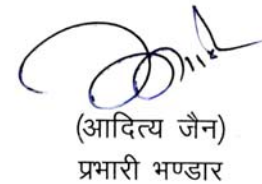 (आदित्य जैन)
प्रभारी भण्डार